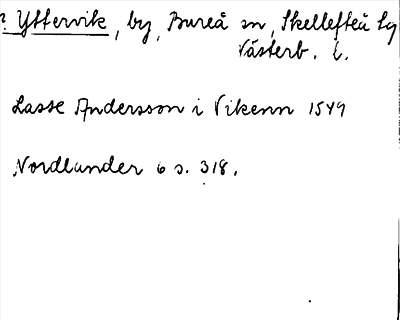 ? Yttervik, by, Bureå sn, Skellefteå tg
Västerb. l.
Lasse Andersson i Vikenn 1549
Nordlander 6 s. 318.